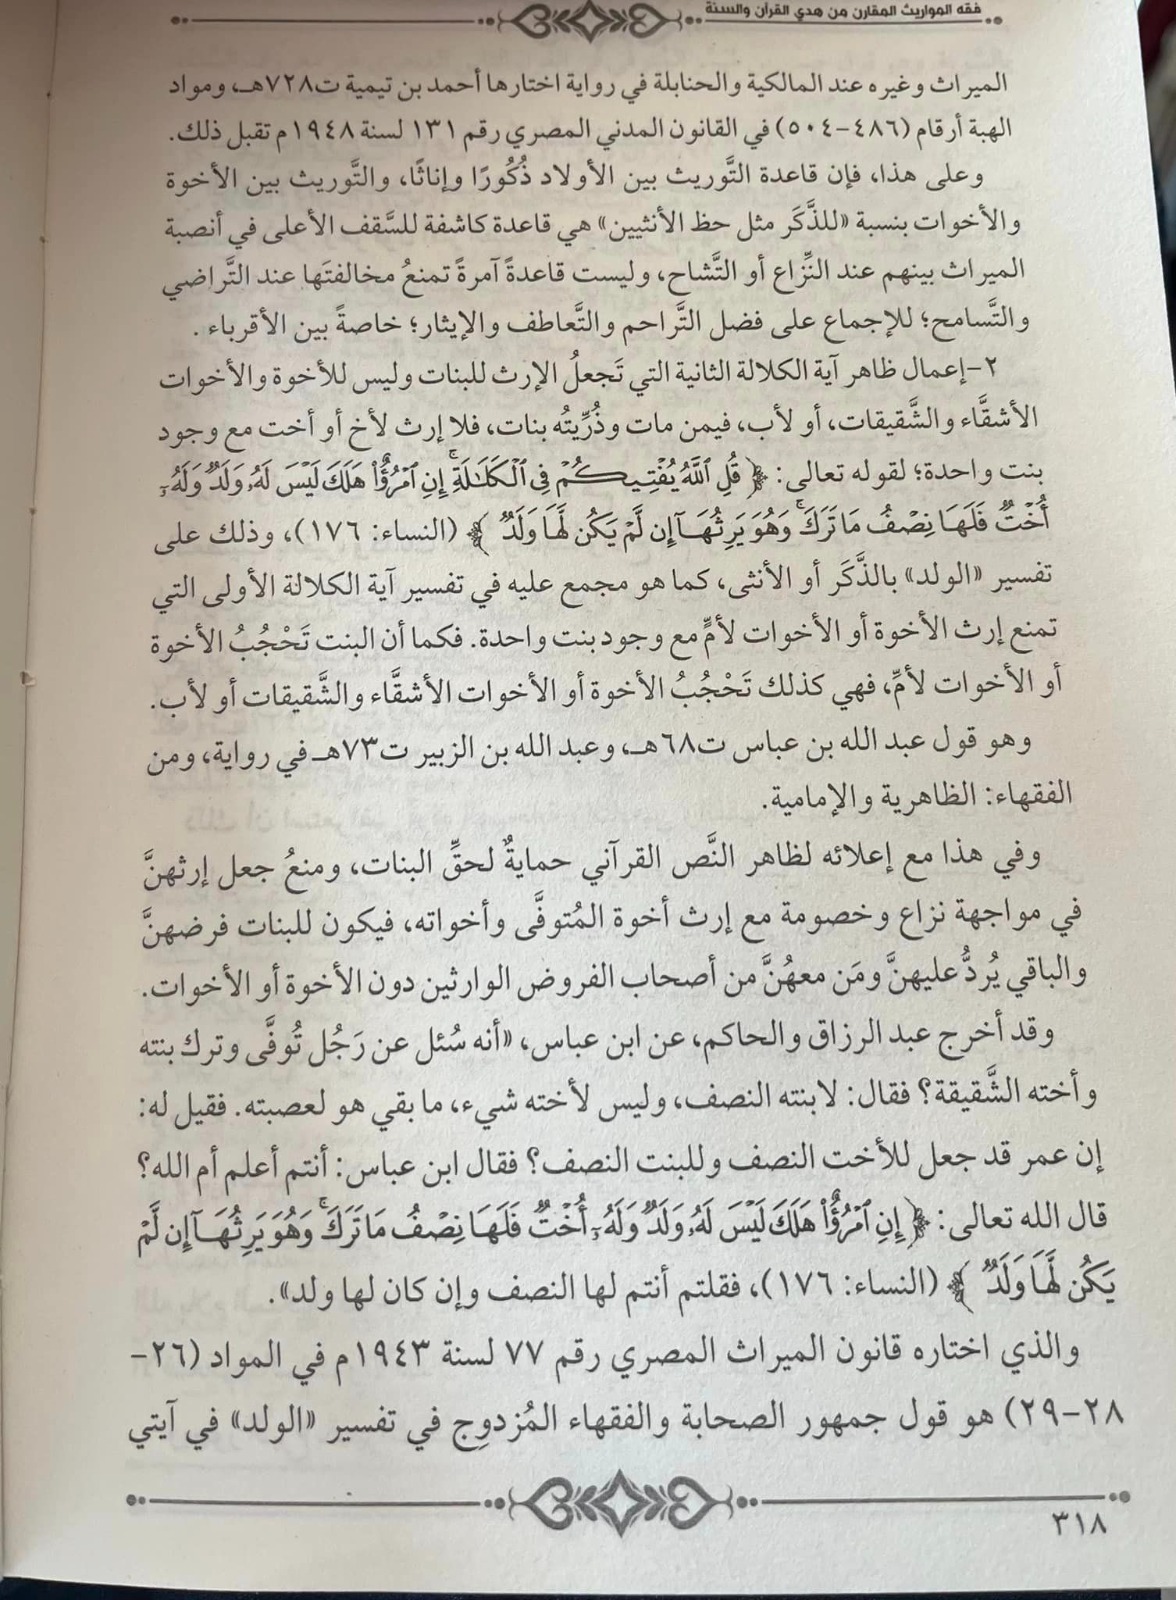 فقه المواريث المقارن من هدي القرآن والسنة
الميراث وغيره عند المالكية والحنابلة في رواية اختارها أحمد بن تيمية ت٧٢٨هـ، ومواد
الهبة أرقام (٤٨٦-٥٠٤) في القانون المدني المصري رقم ١٣١ لسنة ١٩٤٨م تقبل ذلك.
وعلى هذا، فإن قاعدة التَّوريث بين الأولاد ذُكُورًا وإناثًا، والتَّوريث بين الأخوة
والأخوات بنسبة «للذَّكَر مثل حظ الأنثيين» هي قاعدة كاشفة للسَّقف الأعلى في أنصبة
الميراث بينهم عند النِّزاع أو التَّشاح، وليست قاعدةً آمرةً تمنعُ مخالفتَها عند التَّراضي
والتَّسامح؛ للإجماع على فضل التَّراحم والتَّعاطف والإيثار؛ خاصةً بين الأقرباء .
٢-إعمال ظاهر آية الكلالة الثانية التي تَجعلُ الإرث للبنات وليس للأخوة والأخوات
الأشقَّاء والشَّقيقات، أو لأب، فيمن مات وذُرِّيتُه بنات، فلا إرث لأخ أو أخت مع وجود
بنت واحدة؛ لقوله تعالى: ﴿ قُلِ ٱللَّهُ يُفْتِيكُمْ فِى ٱلْكَلَٰلَةِ ۚ إِنِ ٱمْرُؤٌا۟ هَلَكَ لَيْسَ لَهُۥ وَلَدٌ وَلَهُۥٓ
أُخْتٌ فَلَهَا نِصْفُ مَا تَرَكَ ۚ وَهُوَ يَرِثُهَآ إِن لَّمْ يَكُن لَّهَا وَلَدٌ ﴾ (النساء: ١٧٦)، وذلك على
تفسير «الولد» بالذَّكَر أو الأنثى، كما هو مجمع عليه في تفسير آية الكلالة الأولى التي
تمنع إرث الأخوة أو الأخوات لأمٍّ مع وجود بنت واحدة. فكما أن البنت تَحْجُبُ الأخوة
أو الأخوات لأمِّ، فهي كذلك تَحْجُبُ الأخوة أو الأخوات الأشقَّاء والشَّقيقات أو لأب.
وهو قول عبد الله بن عباس ت٦٨هـ، وعبد الله بن الزبير ت٧٣هـ في رواية، ومن
الفقهاء: الظاهرية والإمامية.
وفي هذا مع إعلائه لظاهر النَّص القرآني حمايةٌ لحقِّ البنات، ومنعُ جعل إرثهنَّ
في مواجهة نزاع وخصومة مع إرث أخوة المُتوفَّى وأخواته، فيكون للبنات فرضهنَّ
والباقي يُردُّ عليهنَّ ومَن معهُنَّ من أصحاب الفروض الوارثين دون الأخوة أو الأخوات.
وقد أخرج عبد الرزاق والحاكم، عن ابن عباس، «أنه سُئل عن رَجُل تُوفَّى وترك بنته
وأخته الشَّقيقة؟ فقال: لابنته النصف، وليس لأخته شيء، ما بقي هو لعصبته. فقيل له:
إن عمر قد جعل للأخت النصف وللبنت النصف؟ فقال ابن عباس: أنتم أعلم أم الله؟
قال الله تعالى: ﴿ إِنِ ٱمْرُؤٌا۟ هَلَكَ لَيْسَ لَهُۥ وَلَدٌ وَلَهُۥٓ أُخْتٌ فَلَهَا نِصْفُ مَا تَرَكَ ۚ وَهُوَ يَرِثُهَآ إِن لَّمْ
يَكُن لَّهَا وَلَدٌ ﴾ (النساء: ١٧٦)، فقلتم أنتم لها النصف وإن كان لها ولد».
والذي اختاره قانون الميراث المصري رقم ٧٧ لسنة ١٩٤٣م في المواد (٢٦-
٢٨-٢٩) هو قول جمهور الصحابة والفقهاء المُزدوِج في تفسير «الولد» في آيتي
٣١٨